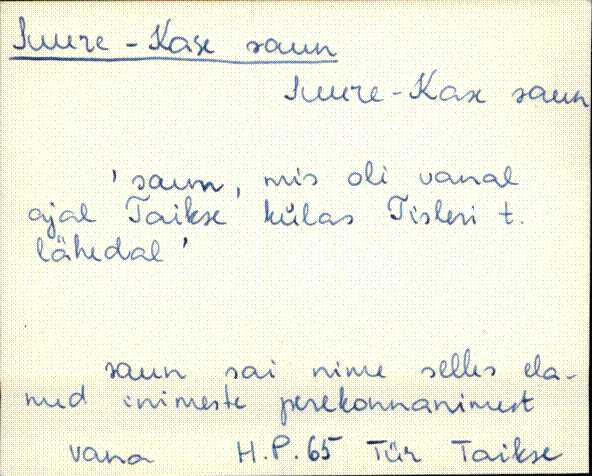 Suure-Kase saun
Suure-Kase saun
'saun, mis oli vanal
ajal Taikse külas Tisleri t.
lähedal'
saun sai nime selles ela-
nud inimeste perekonnanimest
vana H.P. 65 Tür Taikse